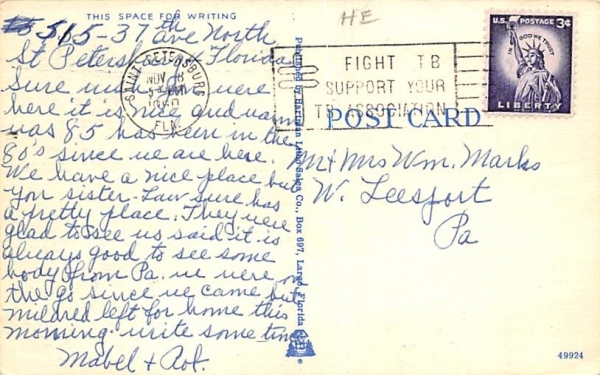 THIS SPACE FOR WRITING
HE
5515-37th ave North
St Petersburg Florida
Sure nice you were
here it is nice and warm
was 85 has been in the
80's since we are here.
We have a nice place but
you sister-Law sure has
a pretty place. They were
glad to see us said it is
always good to see some
body from Pa. we were on
the go since we came but
mildred left for home this
morning. write some time
Mabel + Rot.
SAINT PETERSBURG
NOV 8
1960
FLA.
FIGHT TB
SUPPORT YOUR
TB ASSOCIATION
U.S. POSTAGE 3¢
IN GOD WE TRUST
LIBERTY
POST CARD
Mr + Mrs Wm. Marks
W. Leesport
Pa
Published by Hartman Litho Sales Co., Box 697, Largo, Florida
49924